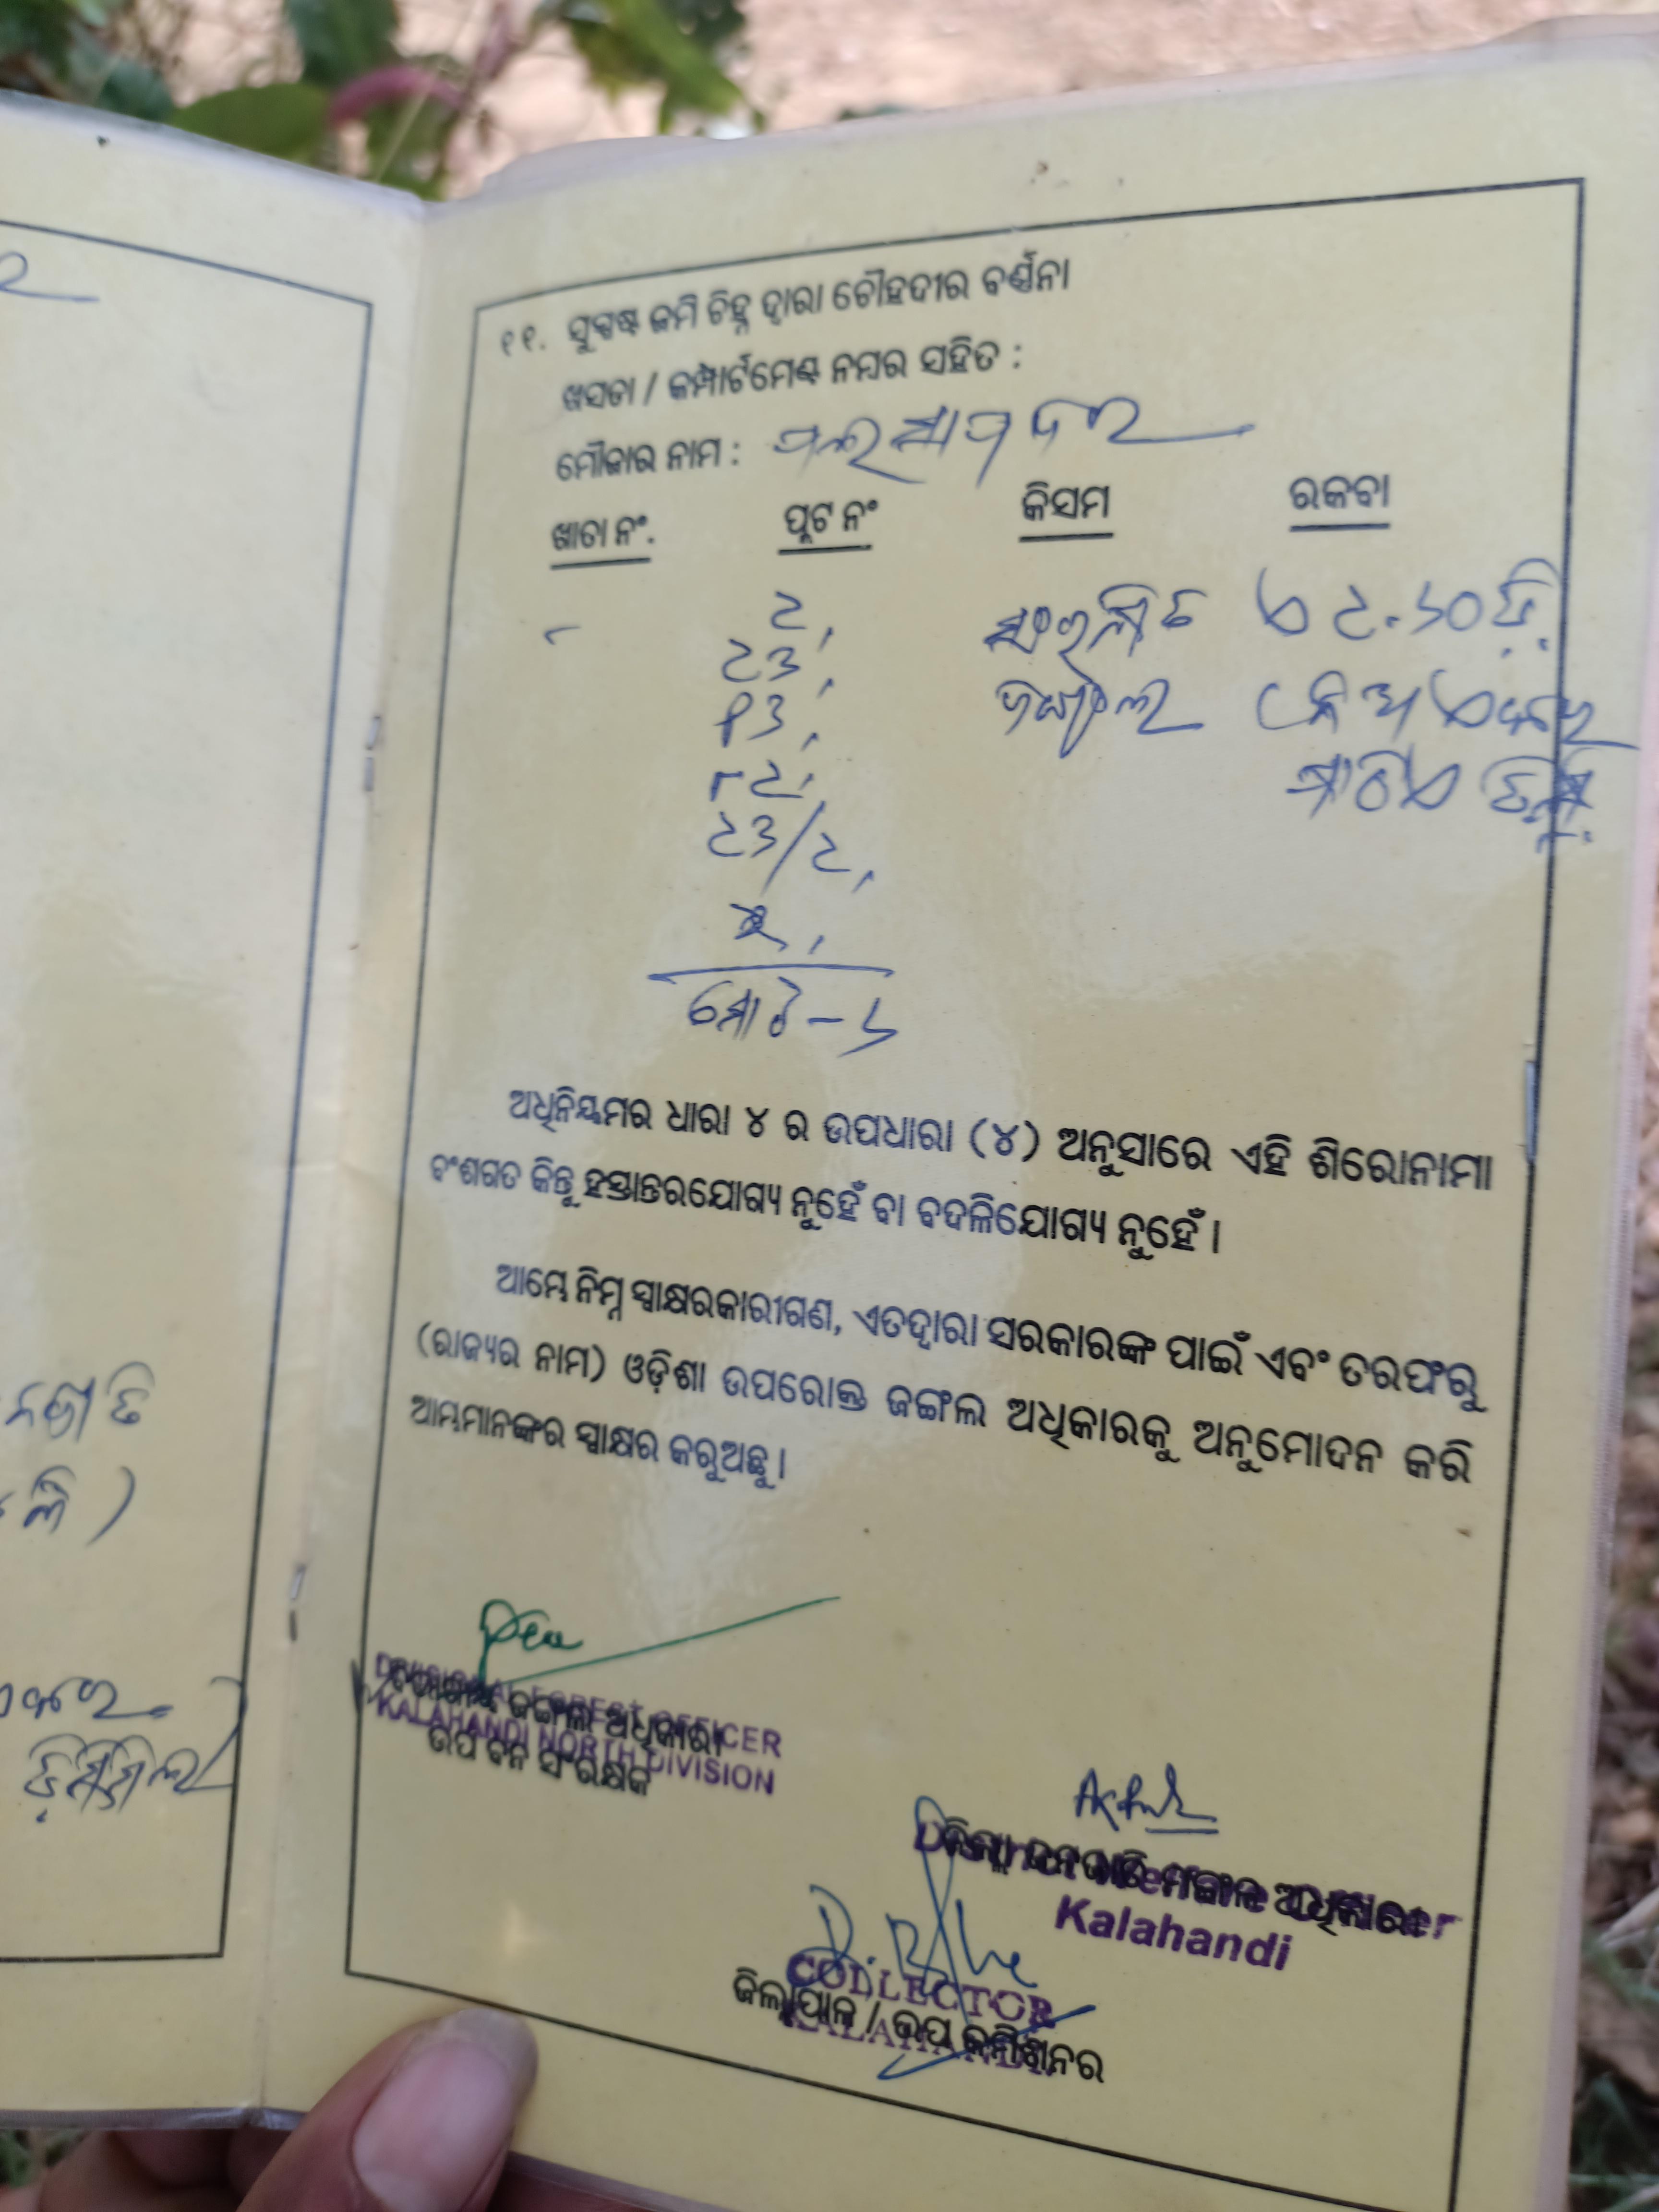 ୧୧. ସୁସ୍ପଷ୍ଟ ଜମି ଚିହ୍ନ ଦ୍ୱାରା ଚୌହଦୀର ବର୍ଣ୍ଣନା
ଖସଡା / କମ୍ପାର୍ଟମେଣ୍ଟ ନମ୍ବର ସହିତ :
ମୌଜାର ନାମ :
ଖାତା ନଂ. ପ୍ଲଟ ନଂ କିସମ ରକବା
୨, ସଂରକ୍ଷିତ ଏ ୨.୬୦ ଡି.
୨୩, ଜଙ୍ଗଲ
୧୩,
୮୨,
୨୩/୨,
ମୋଟ - ୬
ଅଧିନିୟମର ଧାରା ୪ ର ଉପଧାରା (୪) ଅନୁସାରେ ଏହି ଶିରୋନାମା
ବଂଶଗତ କିନ୍ତୁ ହସ୍ତାନ୍ତରଯୋଗ୍ୟ ନୁହେଁ ବା ବଦଳିଯୋଗ୍ୟ ନୁହେଁ ।
ଆମ୍ଭେ ନିମ୍ନ ସ୍ୱାକ୍ଷରକାରୀଗଣ, ଏତଦ୍ୱାରା ସରକାରଙ୍କ ପାଇଁ ଏବଂ ତରଫରୁ
(ରାଜ୍ୟର ନାମ) ଓଡ଼ିଶା ଉପରୋକ୍ତ ଜଙ୍ଗଲ ଅଧିକାରକୁ ଅନୁମୋଦନ କରି
ଆମ୍ଭମାନଙ୍କର ସ୍ୱାକ୍ଷର କରୁଅଛୁ ।
DIVISIONAL FOREST OFFICER
ଜଙ୍ଗଲ ଅଧିକାରୀ
KALAHANDI NORTH DIVISION
ଉପ ବନ ସଂରକ୍ଷକ
ଜିଲ୍ଲା ଜନଜାତି ମଙ୍ଗଳ ଅଧିକାରୀ
Kalahandi
COLLECTOR
ଜିଲ୍ଲାପାଳ / ଉପ କମିଶନର
KALAHANDI